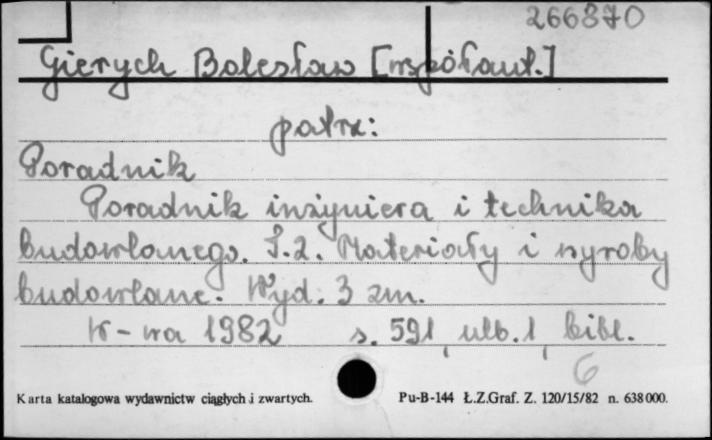 266870
Gierych Bolesław [współaut.]
patrz:
Poradnik
Poradnik inżyniera i technika
budowlanego. T.2. Materiały i wyroby
budowlane. Wyd. 3 zm.
W-wa 1982 s. 591, ulb. 1, bibl.
6
Karta katalogowa wydawnictw ciągłych i zwartych. Pu-B-144 Ł.Z.Graf. Z. 120/15/82 n. 638000.